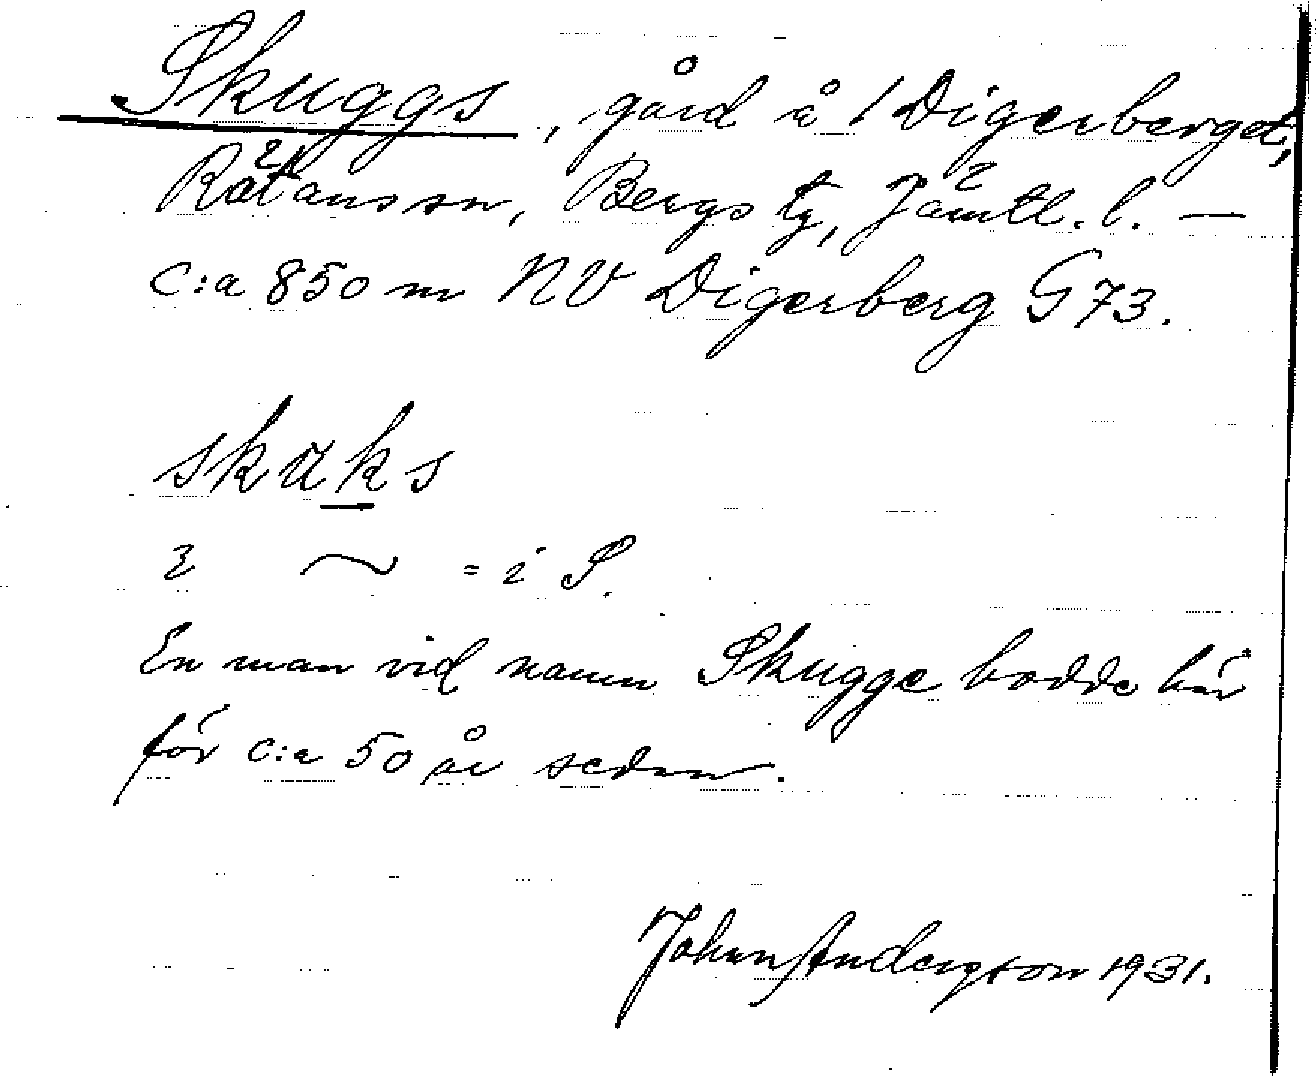 Skuggs, gård å 1 Digerberget,
Rätans sn, Bergs tg, Jämtl. l. —
c:a 850 m NV Digerberg G 73.
skuks
2 ~ = i S.
En man vid namn Skugge bodde här
för c:a 50 år sedan.
Johan Anderzson 1931.